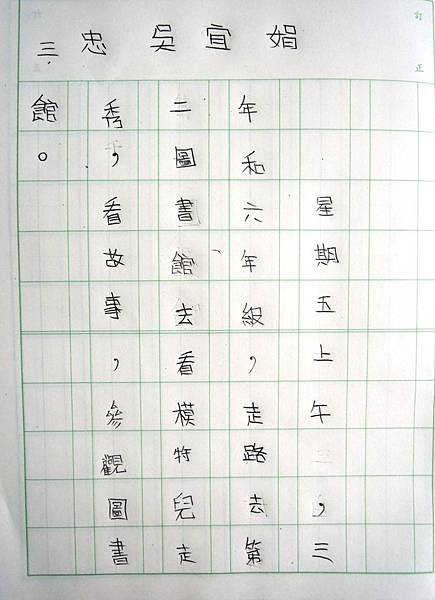 訂正
三忠 吳宜娟
星期五上午，三
年和六年級，走路去第
二圖書館去看模特兒走
秀，看故事，參觀圖書
館。